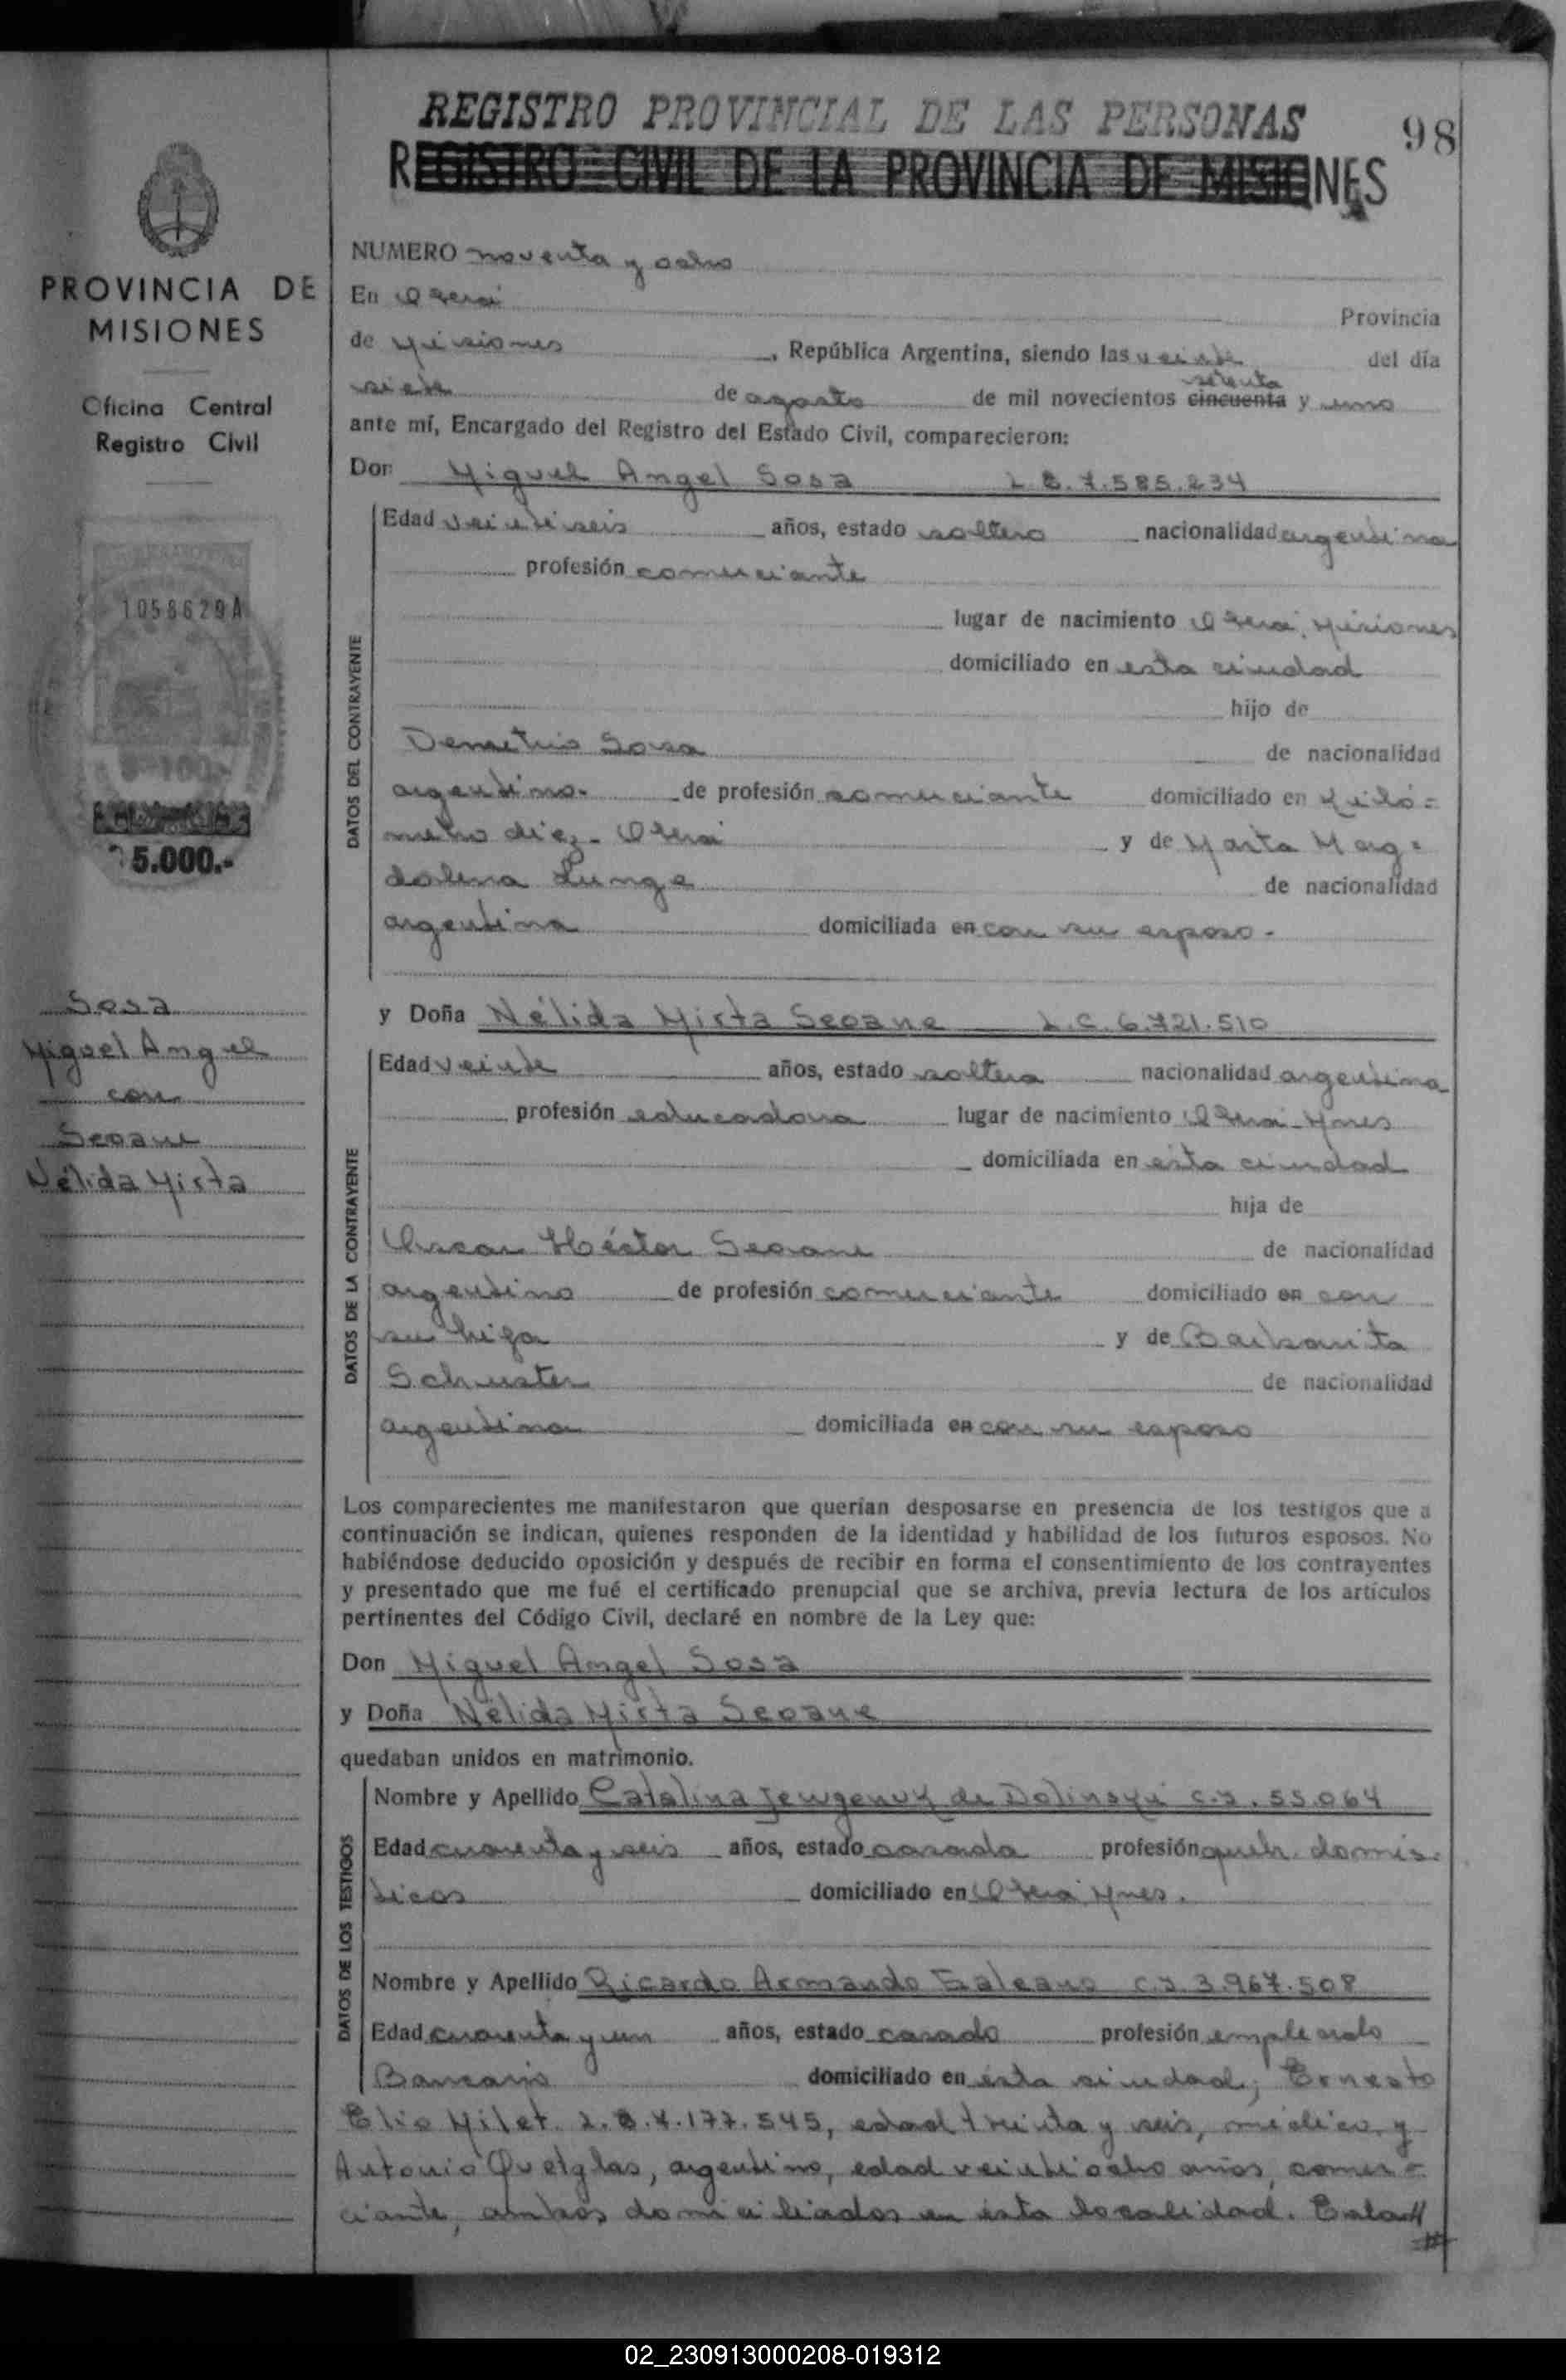 REGISTRO PROVINCIAL DE LAS PERSONAS
98
REGISTRO CIVIL DE LA PROVINCIA DE MISIONES
PROVINCIA DE
MISIONES
Oficina Central
Registro Civil
1058629A
5.000.-
Sosa
Miguel Angel
con
Seoane
Nélida Mirta
NUMERO noventa y ocho
En Oberá Provincia
de Misiones, República Argentina, siendo las veinte del día
setenta
siete de agosto de mil novecientos cincuenta y uno
ante mí, Encargado del Registro del Estado Civil, comparecieron:
Don Miguel Angel Sosa L.E. 7.585.234
DATOS DEL CONTRAYENTE
Edad veintiseis años, estado soltero nacionalidad argentina
profesión comerciante
lugar de nacimiento Oberá, Misiones
domiciliado en esta ciudad
hijo de
Demetrio Sosa de nacionalidad
argentino. de profesión comerciante domiciliado en Kiló=
metro diez - Oberá y de Marta Mag=
dalena Lunge de nacionalidad
argentina domiciliada en con su esposo.
y Doña Nélida Mirta Seoane L.C. 6.721.510
DATOS DE LA CONTRAYENTE
Edad veinte años, estado soltera nacionalidad argentina
profesión educadora lugar de nacimiento Oberá - Mnes
domiciliada en esta ciudad
hija de
Oscar Héctor Seoane de nacionalidad
argentino de profesión comerciante domiciliado en con
su hija y de Barbarita
Schuster de nacionalidad
argentina domiciliada en con su esposo
Los comparecientes me manifestaron que querían desposarse en presencia de los testigos que a
continuación se indican, quienes responden de la identidad y habilidad de los futuros esposos. No
habiéndose deducido oposición y después de recibir en forma el consentimiento de los contrayentes
y presentado que me fué el certificado prenupcial que se archiva, previa lectura de los artículos
pertinentes del Código Civil, declaré en nombre de la Ley que:
Don Miguel Angel Sosa
y Doña Nélida Mirta Seoane
quedaban unidos en matrimonio.
DATOS DE LOS TESTIGOS
Nombre y Apellido Catalina de C.I. 55.064
Edad cuarenta y seis años, estado casada profesión queh. domés=
ticos domiciliado en Oberá Mnes.
Nombre y Apellido Ricardo Armando Galeano C.I. 3.967.508
Edad cuarenta y un años, estado casado profesión empleado
Bancario domiciliado en ésta ciudad; Ernesto
Elio Milet. L.E. 4.177.545, edad treinta y seis, médico y
Antonio Quetglas, argentino, edad veintiocho años, comer=
ciante, ambos domiciliados en ésta localidad.
02_230913000208-019312